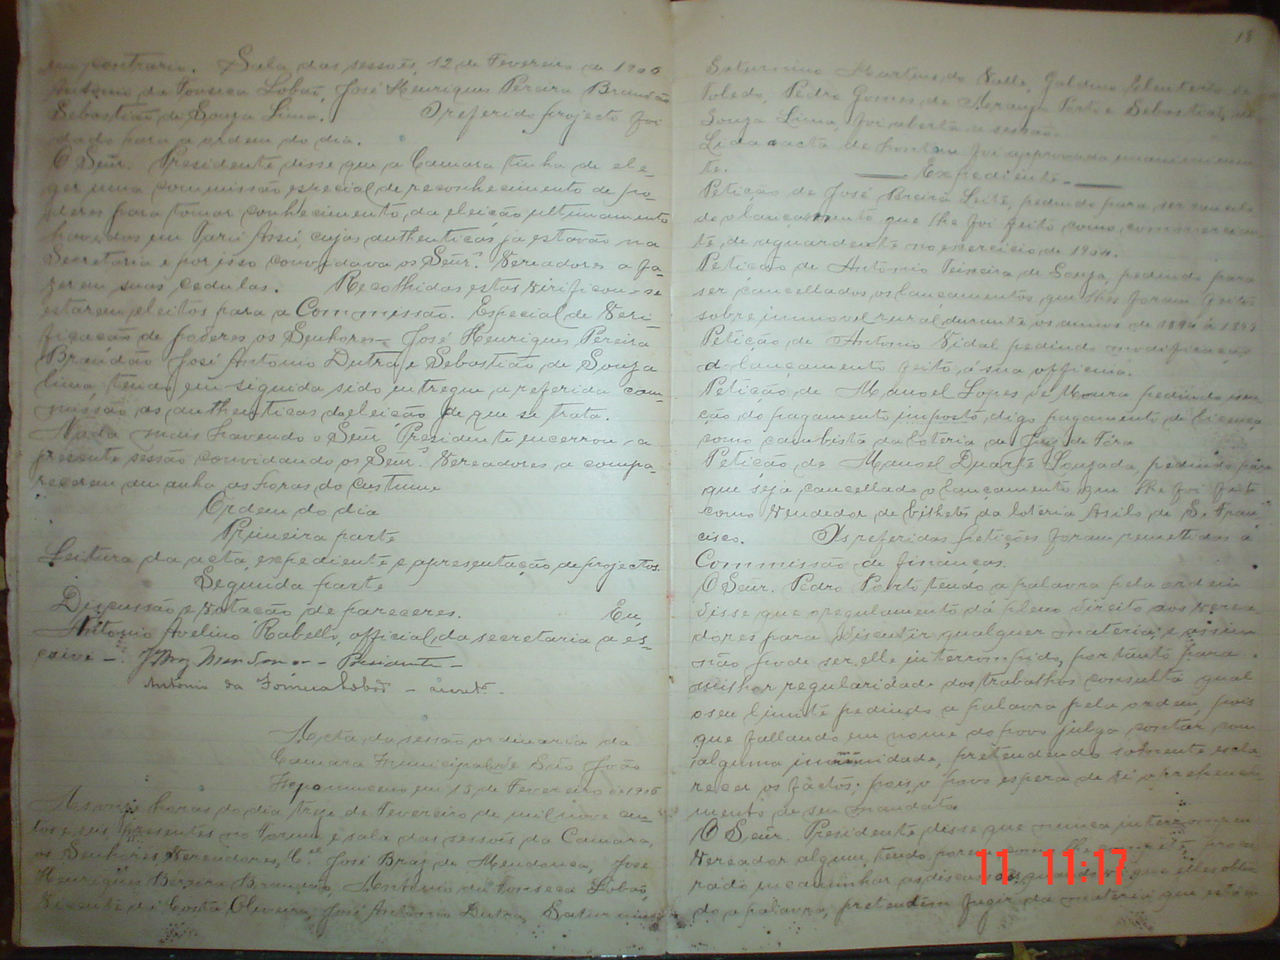 em contrario. Sala das sessões, 12 de Fevereiro de 1906
Antonio da Fonseca Lobão, José Henriques Pereira Brandão
Sebastião de Souza Lima. O referido projecto foi
dado para a ordem do dia.
O Señr. Presidente disse que a Camara tinha de ele-
ger uma commissão especial de reconhecimento de po-
deres para tomar conhecimento da eleição ultimamente
havidas em Tarú Assú, cujas authenticas ja estavão na
Secretaria e por isso convidava os Señrs. Vereadores a fa-
zerem suas cedulas. Recolhidas estas verificou-se
estarem eleitos para a Commissão Especial de Veri-
ficação de poderes os Senhores José Henriques Pereira
Brandão José Antonio Dutra e Sebastião de Souza
lima tendo em seguida sido entregue a referida com-
missão as authenticas da eleição de que se trata.
Nada mais havendo o Señr. Presidente encerrou-a
presente sessão convidando os Señrs. Vereadores a compa-
recerem amanha as horas do custume
Ordem do dia
Primeira parte
Leitura da acta, expediente e apresentação de projectos.
Segunda parte
Discussão e votação de pareceres. Eu,
Antonio Avelino Rabello, official da secretaria a es-
crivi - Presidente -
Antonio da Fonseca Lobão
Acta da sessão ordinaria da
Camara Municipal de São João
Nepomuceno em 13 de Fevereiro de 1906
As onze horas do dia treze de Fevereiro de mil nove cen-
tos e seis presentes no Forum e sala das sessões da Camara,
os Senhores Vereadores, Cel. José Braz de Mendonça, José
Henriques Pereira Brandão, Antonio da Fonseca Lobão,
Vicente da Costa Oliveira, José Antonio Dutra,
18
Saturnino Martins do Valle, Galdino Eleuterio de
Toledo, Pedro Gomes de Araujo Porto e Sebastião de
Souza Lima, foi aberta a sessão.
Lida a acta de hontem foi approvada unanimemen-
te.
Expediente
Petição de José Pereira Leite, pedindo para ser
do lançamento que lhe foi feito como commercian-
te de aguardente no exercicio de 1904.
Petição de Antonio Teixeira de Souza, pedindo para
ser cancellados os lançamentos que lhes foram feitos
sobre immovel rural durante os annos de 1894 à
Petição de Antonio Vidal pedindo modificação
do lançamento feito á sua officina.
Petição de Manoel Lopes de Moura pedindo isen-
ção do pagamento imposto, digo pagamento de licença
como cambista da loteria de Juiz de Fóra
Petição de Manoel Duarte Louzada pedindo para
que seja cancellado o lançamento que lhe foi feito
como Vendedor de bilhetes da loteria Asilo de S. Fran-
cisco. As referidas petições foram remettidas á
Commissão de finanças.
O Señr. Pedro Porto tendo a palavra pela ordem
disse que o regulamento dá pleno direito aos Verea-
dores para discutir qualquer materia, e assim
não pode ser elle interrompido, portanto para
melhor regularidade dos trabalhos consulta qual
o seu limite pedindo a palavra pela ordem, pois
que fallando em nome do povo julga contar com
alguma immunidade, pretendendo somente escla-
recer os factos: pois, o povo espera de si o
mento de seu mandato.
O Señr. Presidente disse que nunca interrompeu
Vereador algum, tendo porem como lhe compete procu-
rado encaminhar as discussões quando que elles obten-
do a palavra, pretendem fugir da materia que
11 11:17